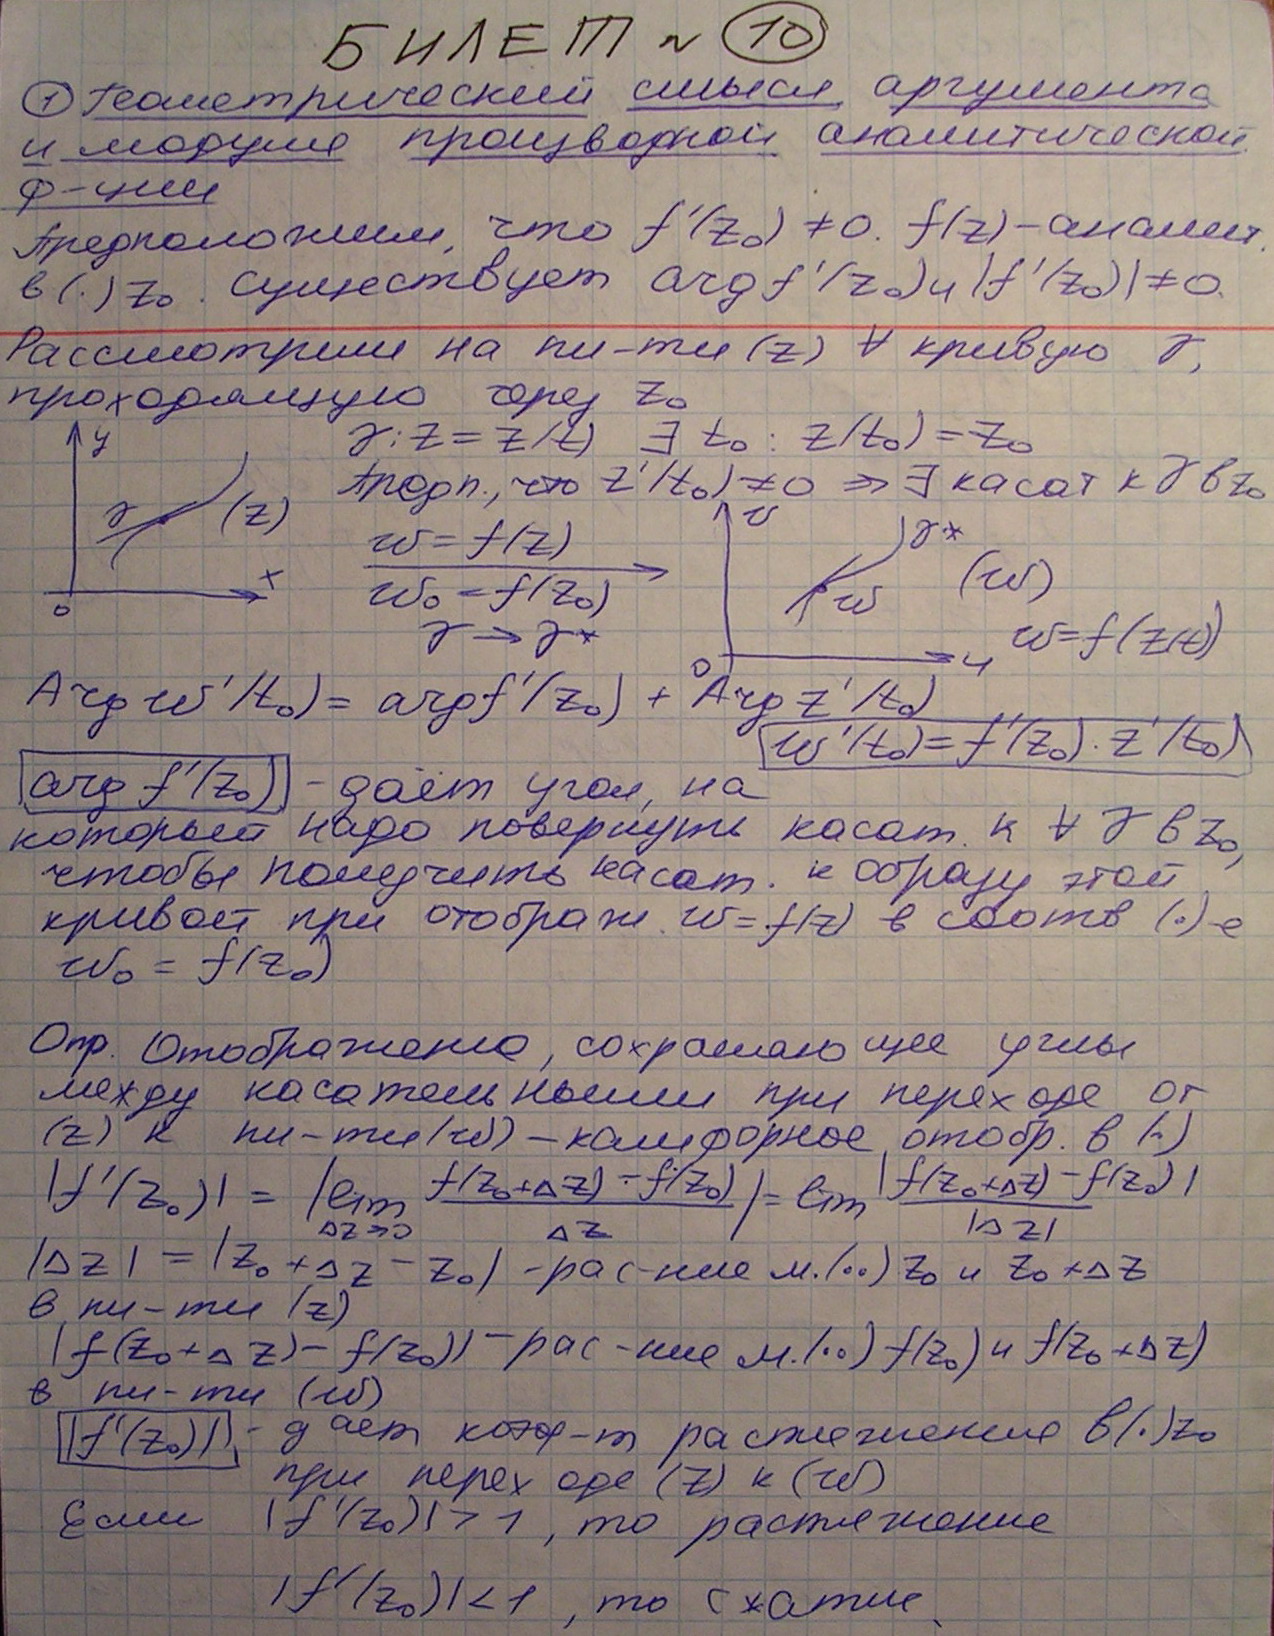 БИЛЕТ № 10
① Геометрический смысл аргумента
и модуля производной аналитической
ф-ции
Предположим, что f'(z₀) ≠ 0. f(z) – аналит.
в (·) z₀. Существует arg f'(z₀) и |f'(z₀)| ≠ 0.
Рассмотрим на пл-ти (z) ∀ кривую γ,
проходящую через z₀
γ: z = z(t) ∃ t₀ : z(t₀) = z₀
Предп., что z'(t₀) ≠ 0 ⇒ ∃ касат к γ в z₀
y
γ
(z)
x
0
w = f(z)
w₀ = f(z₀)
γ → γ*
v
γ*
w
(w)
0
u
w = f(z(t))
Arg w'(t₀) = arg f'(z₀) + Arg z'(t₀)
w'(t₀) = f'(z₀) · z'(t₀)
arg f'(z₀) – даёт угол, на
который надо повернуть касат. к ∀ γ в z₀,
чтобы получить касат. к образу этой
кривой при отображ. w = f(z) в соотв (·)-е
w₀ = f(z₀)
Опр. Отображение, сохраняющее углы
между касательными при переходе от
(z) к пл-ти (w) – конформное отобр. в (·)
|f'(z₀)| = |lim_{Δz→0} (f(z₀+Δz) – f(z₀))/Δz| = lim |f(z₀+Δz) – f(z₀)|/|Δz|
|Δz| = |z₀ + Δz – z₀| – рас-ние м. (··) z₀ и z₀ + Δz
в пл-ти (z)
|f(z₀+Δz) – f(z₀)| – рас-ние м. (··) f(z₀) и f(z₀+Δz)
в пл-ти (w)
|f'(z₀)| – дает коэф-т растяжения в (·) z₀
при переходе (z) к (w)
Если |f'(z₀)| > 1, то растяжение
|f'(z₀)| < 1, то сжатие.